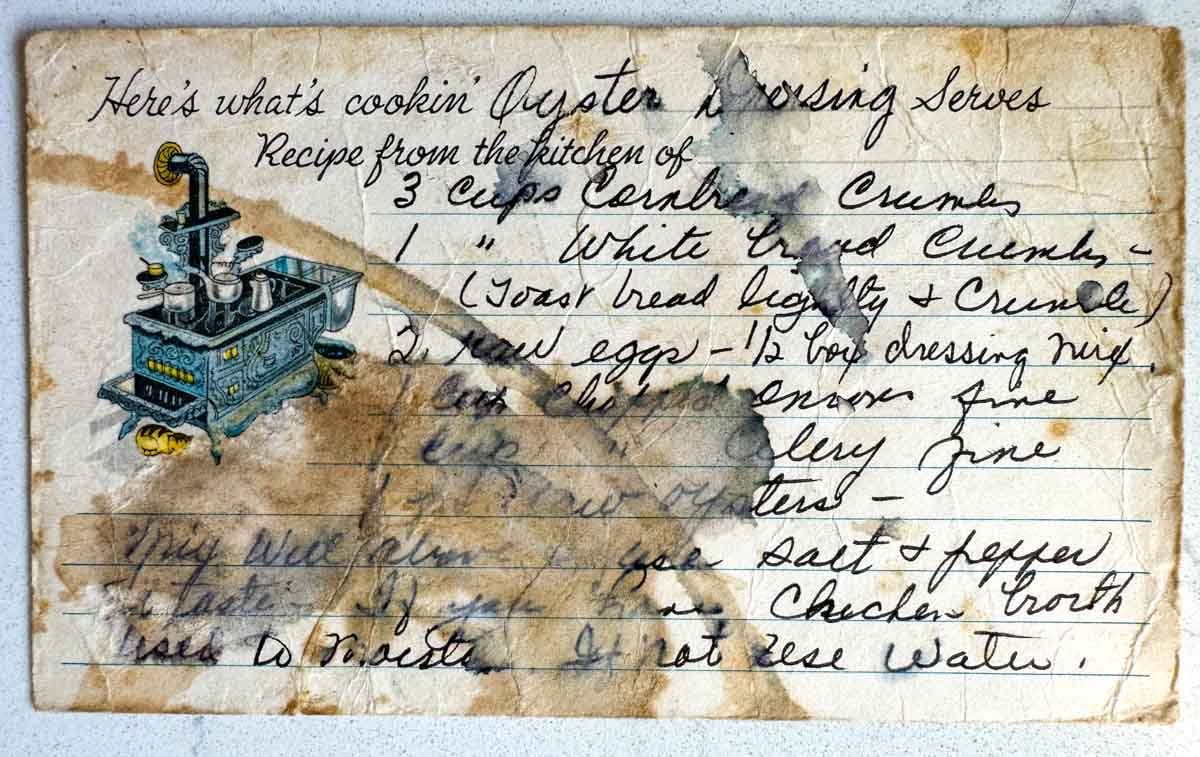 Here's what's cookin' Oyster Dressing Serves
Recipe from the kitchen of
3 Cups Cornbread Crumbs
1 " White bread Crumbs -
(Toast bread lightly & Crumble)
2 raw eggs - 1/2 box dressing mix.
1 Cup Chopped onions fine
cup " Celery fine
1 raw oysters -
Mix well above use salt & pepper
to taste. If you have Chicken broth
used to moisten If not use water.